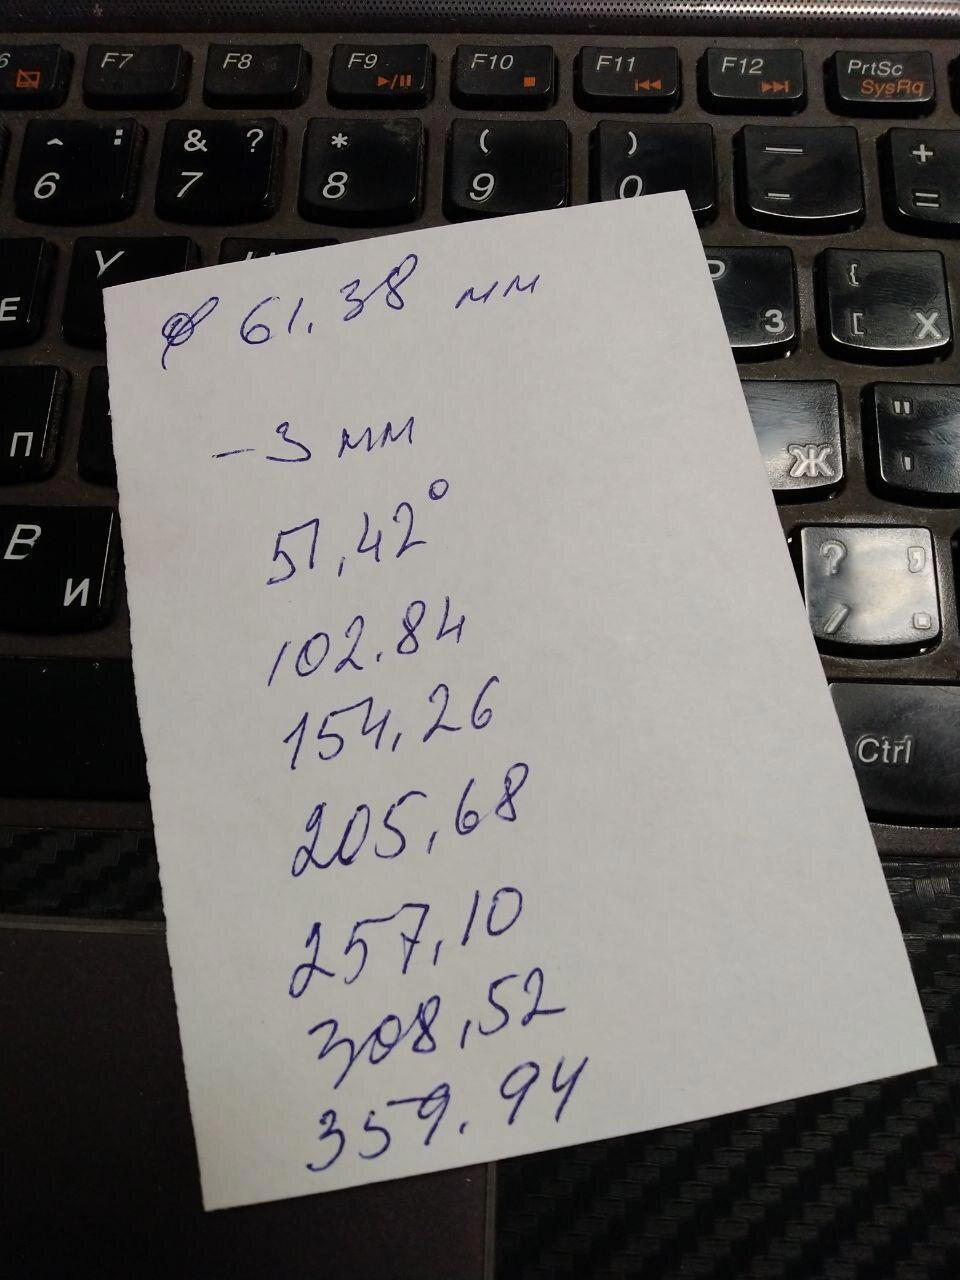 6 F7 F8 F9 F10 F11 F12 PrtSc SysRq
^ : 6 & ? 7 * 8 ( 9 ) 0 — - + =
E Y P З { [ Х
П Ж " '
В И ? , / .
Ctrl
⌀ 61.38 мм
-3 мм
51,42°
102.84
154,26
205,68
257,10
308,52
359.94